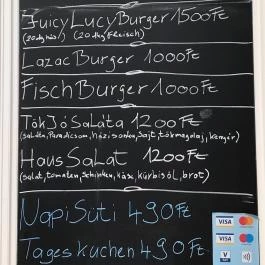 JuicyLucyBurger 1500Ft
(20dkg hús) (20dkg Fleisch)
LazacBurger 1000Ft
FischBurger 1000Ft
TökJóSaláta 1200Ft
(saláta, Paradicsom, házi sonka, sajt, tökmagolaj, kenyér)
HausSaLat 1200Ft
(salat, tomaten, schinken, käse, kürbisöl, brot)
NapiSüti 490Ft
Tageskuchen 490Ft
VISA
VISA
V PAY